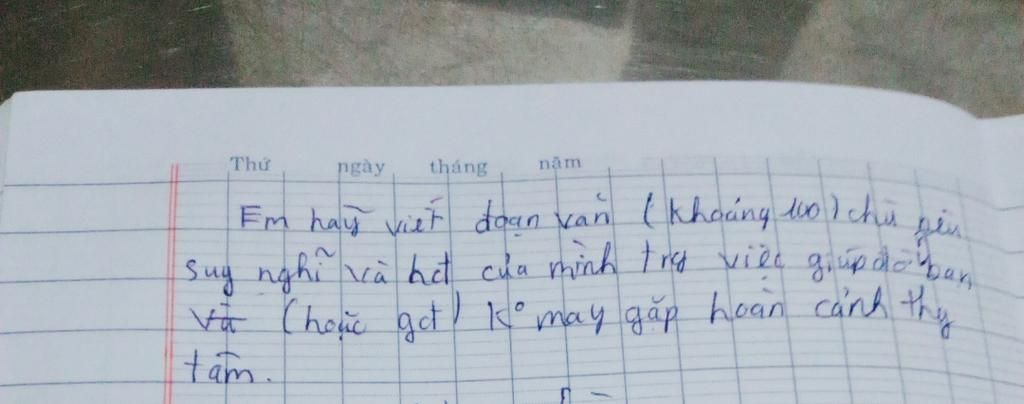 Thứ ngày tháng năm
Em hãy viết đoạn văn (khoảng 100) chữ nêu
suy nghĩ và hđ của mình trg việc giúp đỡ bạn
và (hoặc gđ) ko may gặp hoàn cảnh thg
tâm.